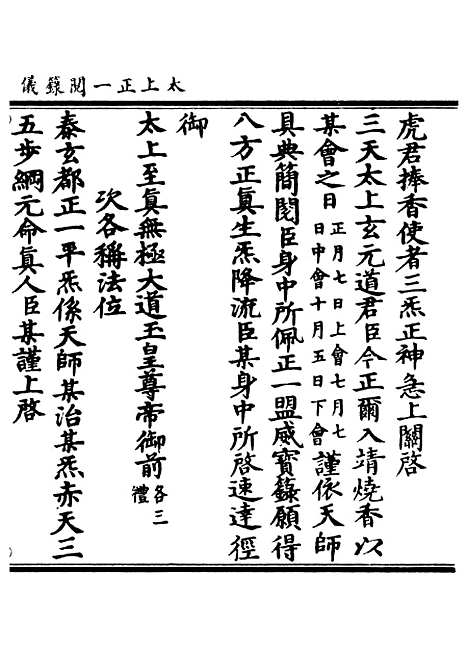 太上正一閱籙儀
虎君捧香使者三炁正神急上關啓
三天太上玄元道君臣今正爾入靖燒香以
某會之日正月七日上會七月七日中會十月五日下會謹依天師
具典簡閱臣身中所佩正一盟威寶籙願得
八方正真生炁降流臣某身中所啓速達徑
御
太上至眞無極大道玉皇尊帝御前各三禮
次各稱法位
泰玄都正一平炁係天師某治某炁赤天三
五步綱元命眞人臣某謹上啓